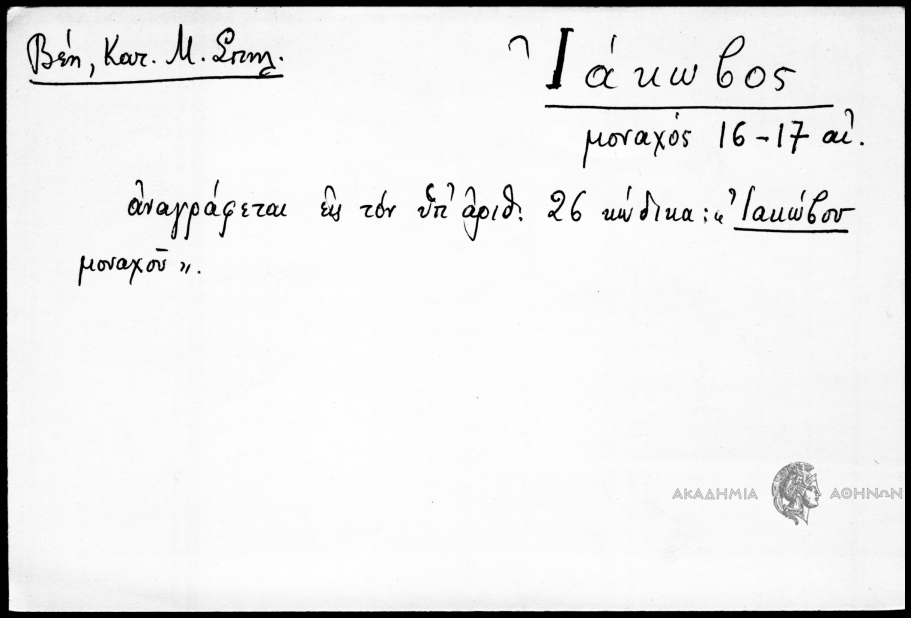 Βέη, Κατ. Μ. Σπηλ.
Ἰάκωβος
μοναχός 16-17 αἰ.
ἀναγράφεται εἰς τόν ὑπ' ἀριθ. 26 κώδικα: «Ἰακώβου
μοναχοῦ».
ΑΚΑΔΗΜΙΑ ΑΘΗΝΩΝ